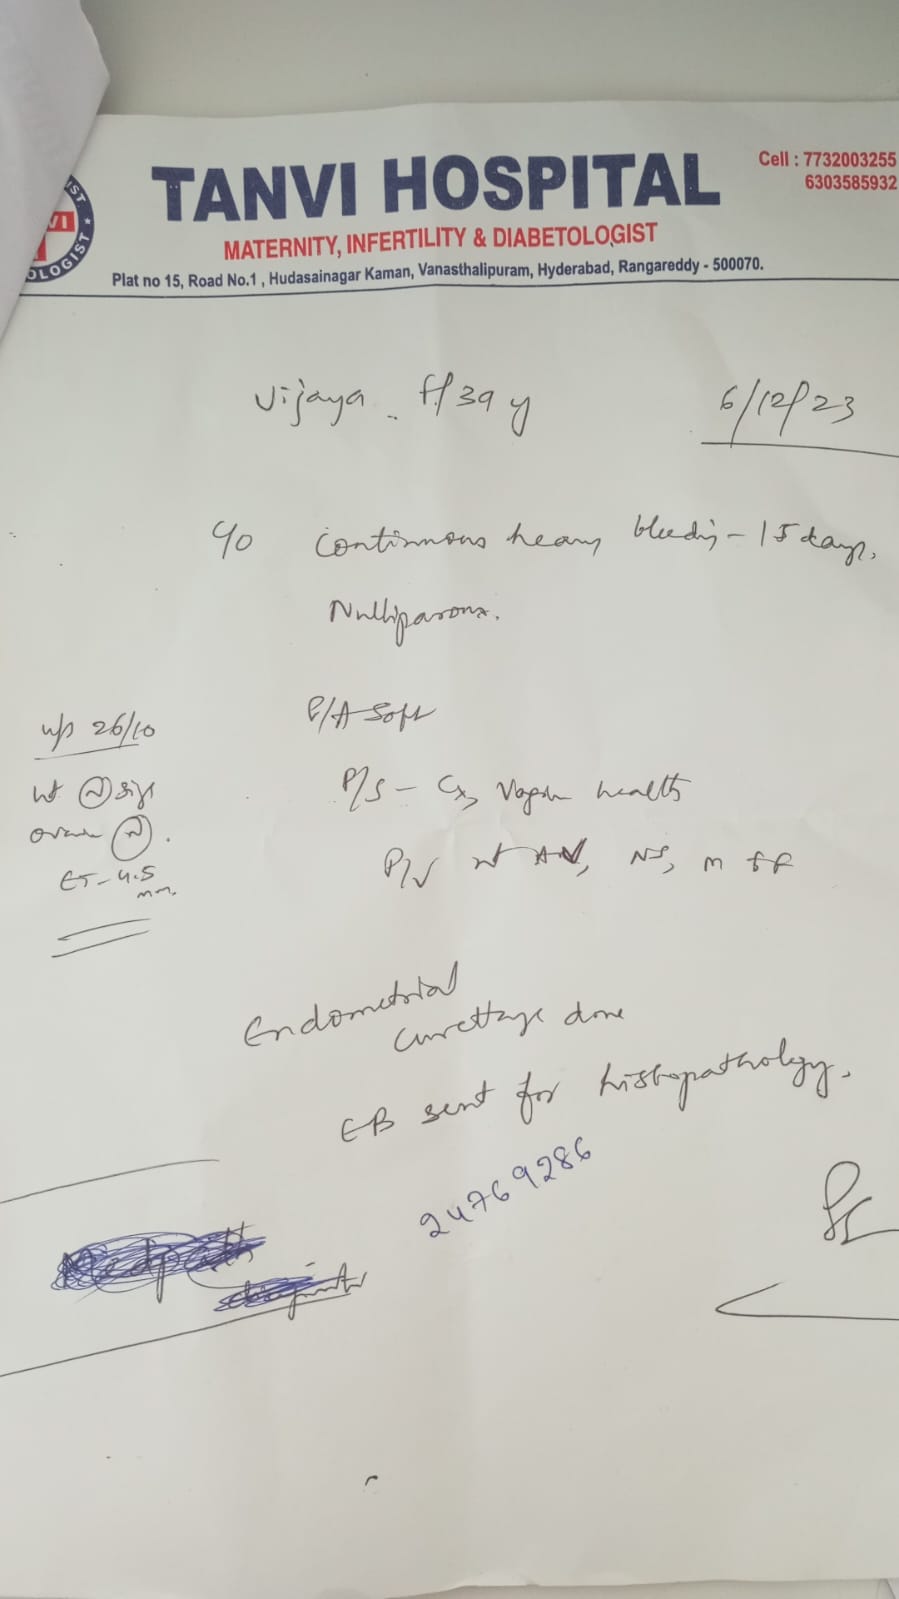 TANVI HOSPITAL
Cell : 7732003255
6303585932
MATERNITY, INFERTILITY & DIABETOLOGIST
Plat no 15, Road No.1 , Hudasainagar Kaman, Vanasthalipuram, Hyderabad, Rangareddy - 500070.
VI
OLOGIST
Vijaya. F/39 y
6/12/23
c/o Continuous heavy bleeding - 15 days,
Nulliparous.
P/A Soft
u/s 26/10
ut (N) size
ovaries (N).
ET - 4.5
mm
P/S - Cx, Vagina healthy
P/V ut AV, NS, m FF
Endometrial
curettage done
EB sent for histopathology.
24769286